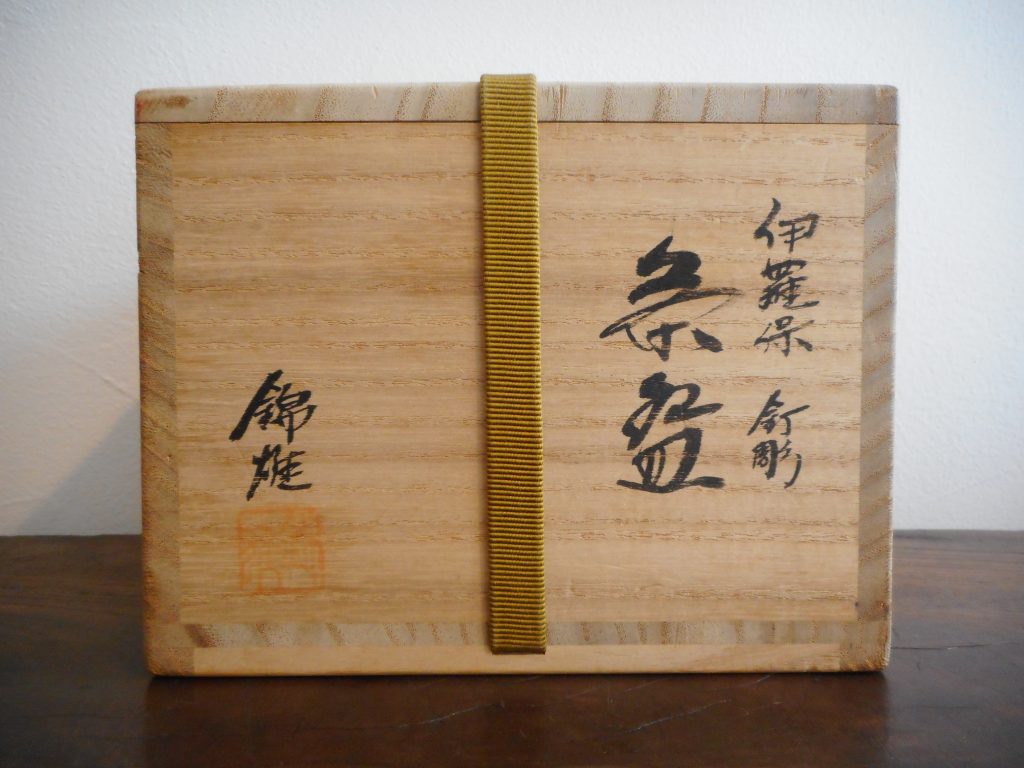 伊羅保 釘彫
茶盌
錦雄